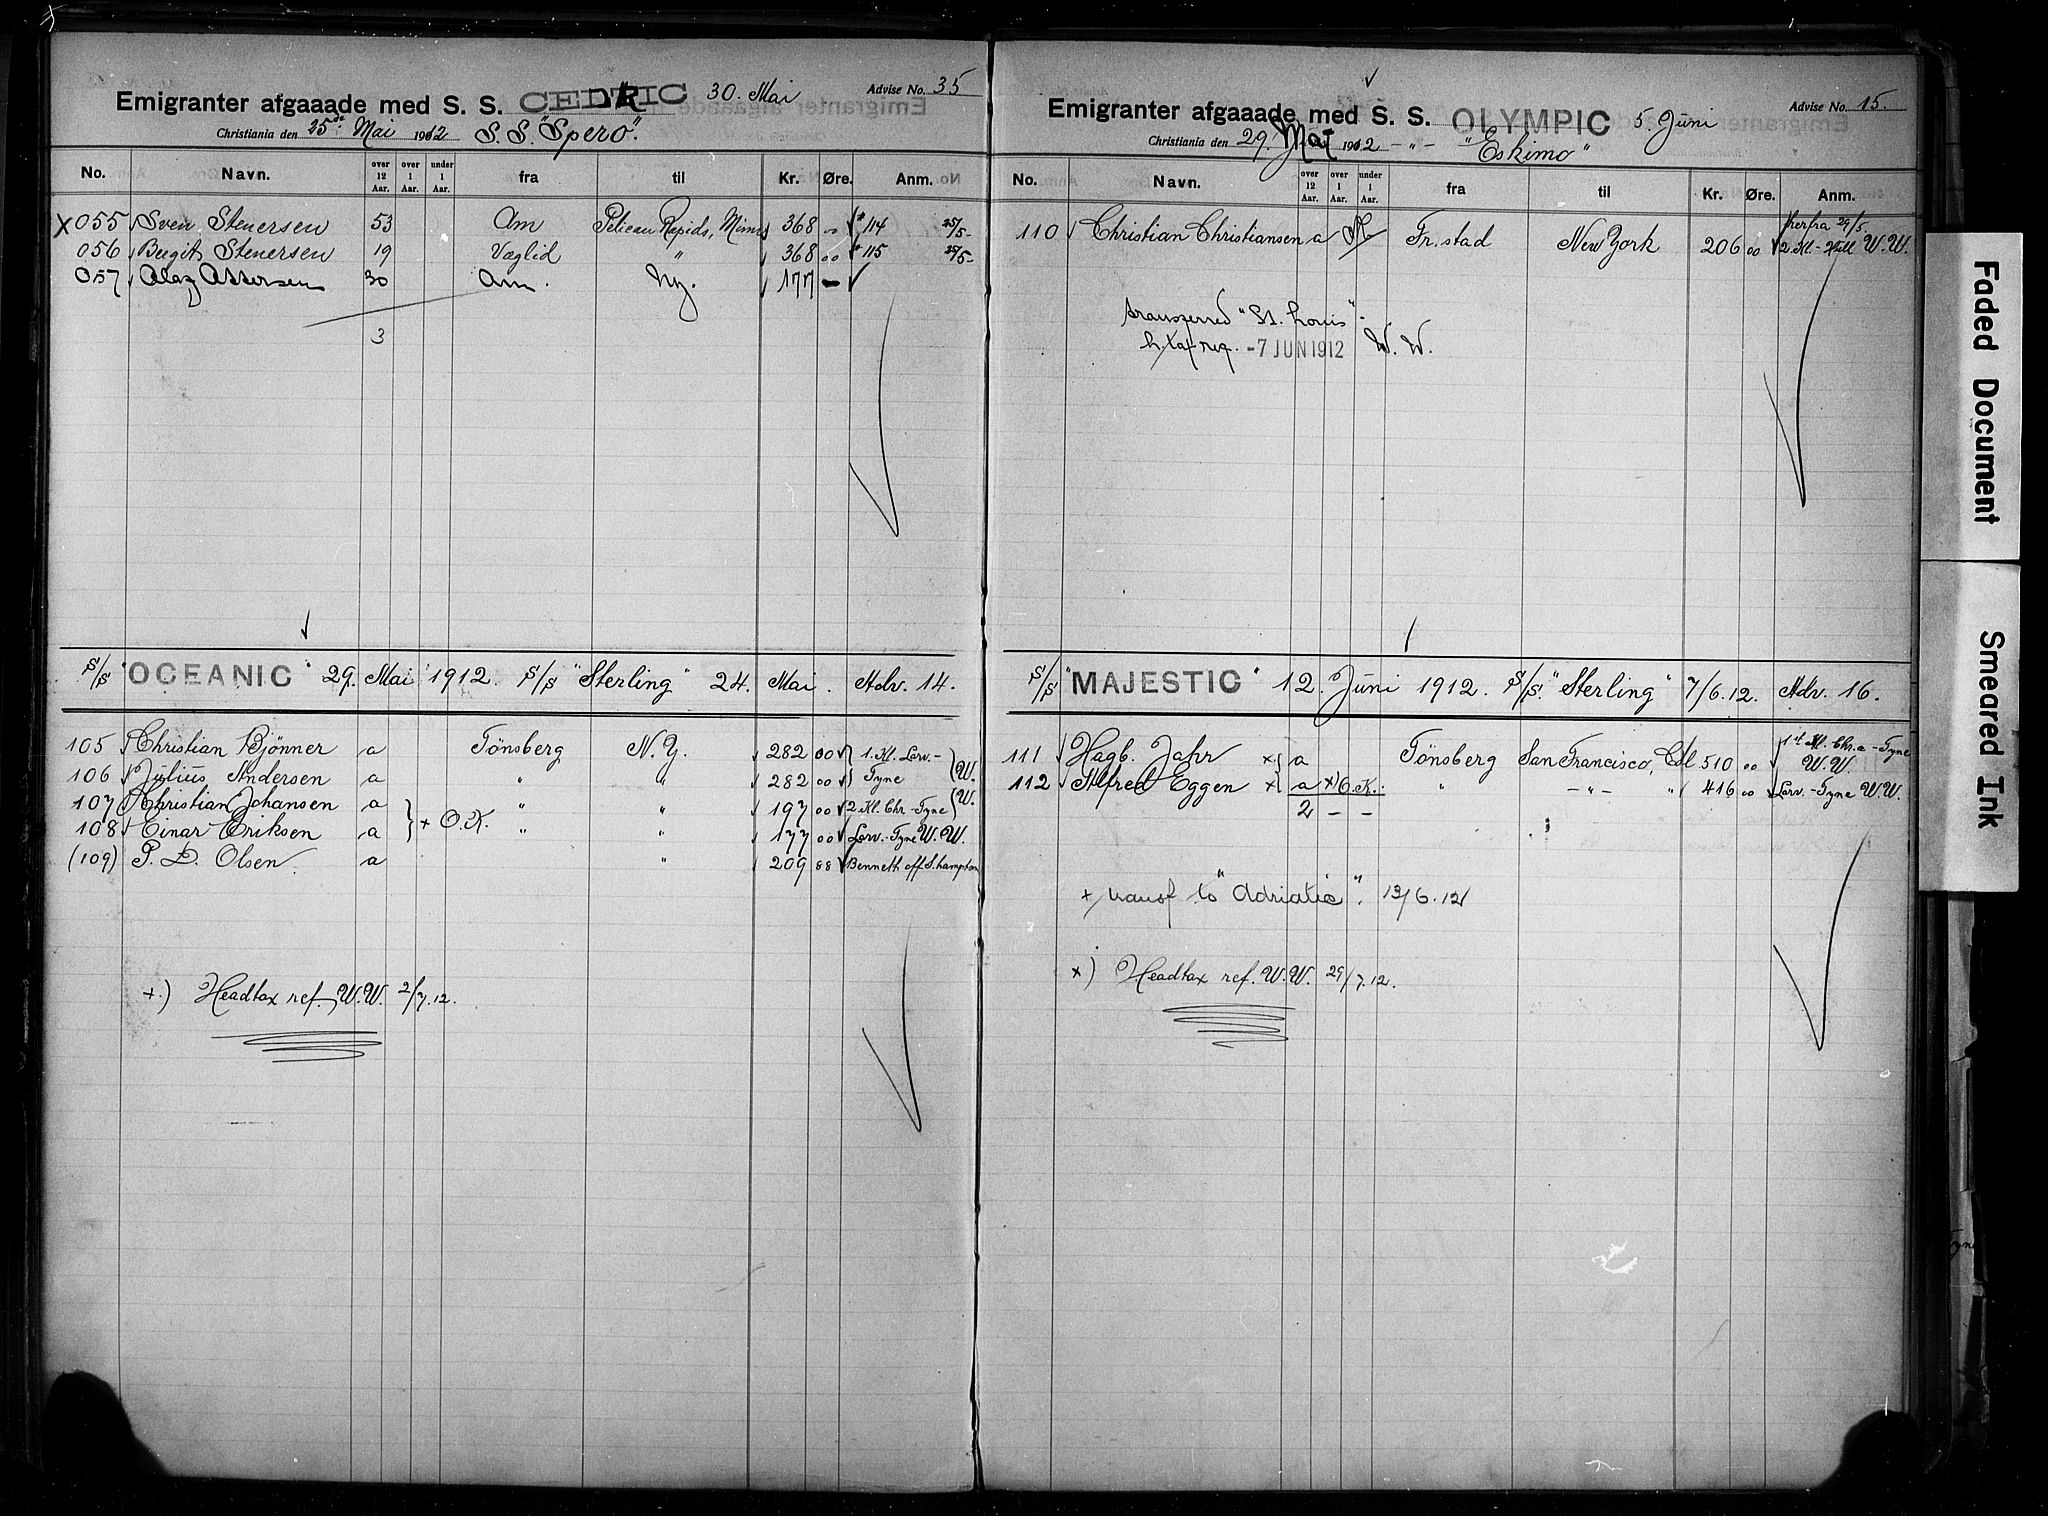 Emigranter afgaaade med S. S. CEDRIC 30. Mai Advise No. 35
Christiania den 25de Mai 1912 S.S. "Spero".
No. Navn. over 12 Aar. over 1 Aar. under 1 Aar. fra til Kr. Øre. Anm.
X 055 Sven Stenersen 53 Am Pelican Rapids, Minn 368 00 # 114 25/5-
056 Birgit Stenersen 19 Væglid " 368 00 # 115 25/5-
057 30 Am. Ny. 177 -
3
S/S "OCEANIC" 29. Mai 1912. S/S "Sterling" 24. Mai. Adv. 14.
105 Christian Bjönner a Tönsberg N.Y. 282 00 1. Kl. Larv.-
106 Julius Andersen a " " 282 00 Tyne (W.
107 Christian Johansen a " " 197 00 2 Kl. Chr-Tyne (W.
108 Einar Eriksen a + O.K. " " 177 00 Larv.-Tyne W.W.
(109) P. D. Olsen. a " 209 88 Benneth off. S.hampton
+.) Headtax ref. W.W. 2/7.12.
Emigranter afgaaade med S. S. OLYMPIC 5. Juni Advise No. 15.
Christiania den 29. Mai 1912 -"- "Eskimo"
No. Navn. over 12 Aar. over 1 Aar. under 1 Aar. fra til Kr. Øre. Anm.
110 Christian Christiansen a Fr.stad New York 206 00 herfra 29/5.
2. Kl.-Hull W.W.
transferred "St. Louis".
h.tax req. -7 JUN 1912 W.W.
S/S "MAJESTIC" 12. Juni 1912. S/S "Sterling" 7/6.12. Adv. 16.
111 Hagb. Jahr x a Tönsberg San Francisco, Cal 510 00 1st Kl. Chr.a-Tyne
W.W.
112 Alfred Eggen x a x) O.K. " -"- " 416 00 Larv.-Tyne W.W.
2 - -
+ transf to "Adriatic". 13/6.12
x) Headtax ref. W.W. 29/7.12.
Faded Document
Smeared Ink